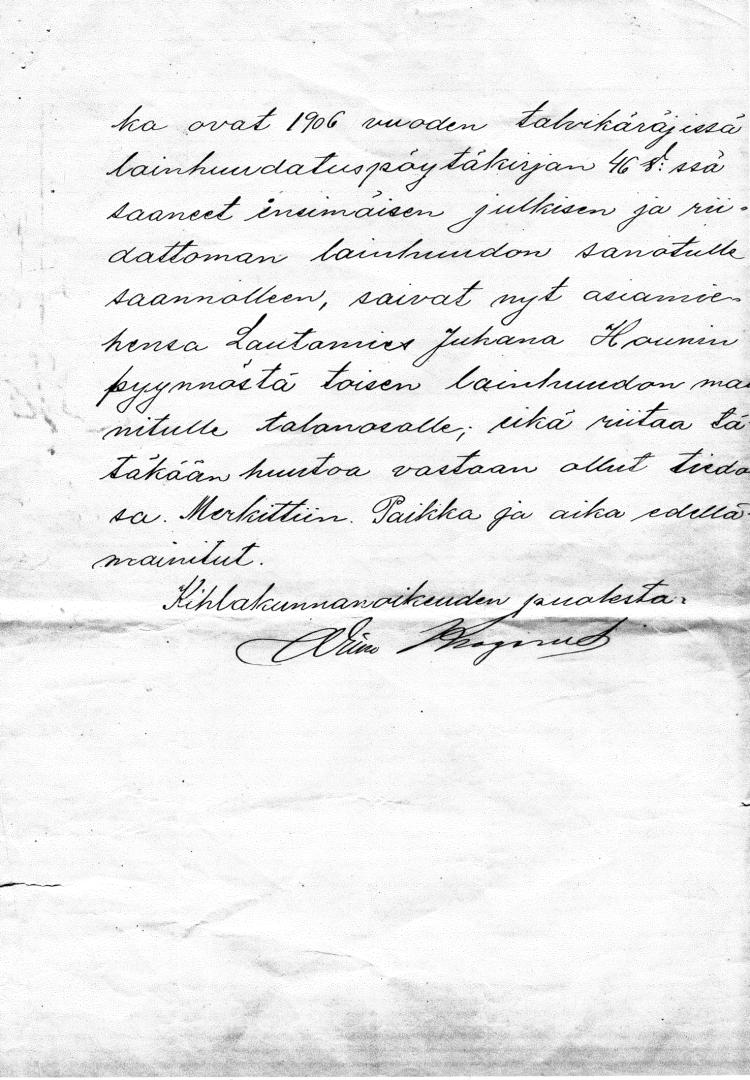 ka ovat 1906 vuoden talvikäräjissä
lainhuudatuspöytäkirjan 46 §: ssä
saaneet ensimäisen julkisen ja rii-
dattoman lainhuudon sanotulle
saannolleen, saivat nyt asiamie-
hensä Lautamies Juhana Hounin
pyynnöstä toisen lainhuudon mai
nitulle talonosalle; eikä riitaa tä
täkään huutoa vastaan ollut tiedo
sa. Merkittiin. Paikka ja aika edellä-
mainitut.
Kihlakunnanoikeuden puolesta: